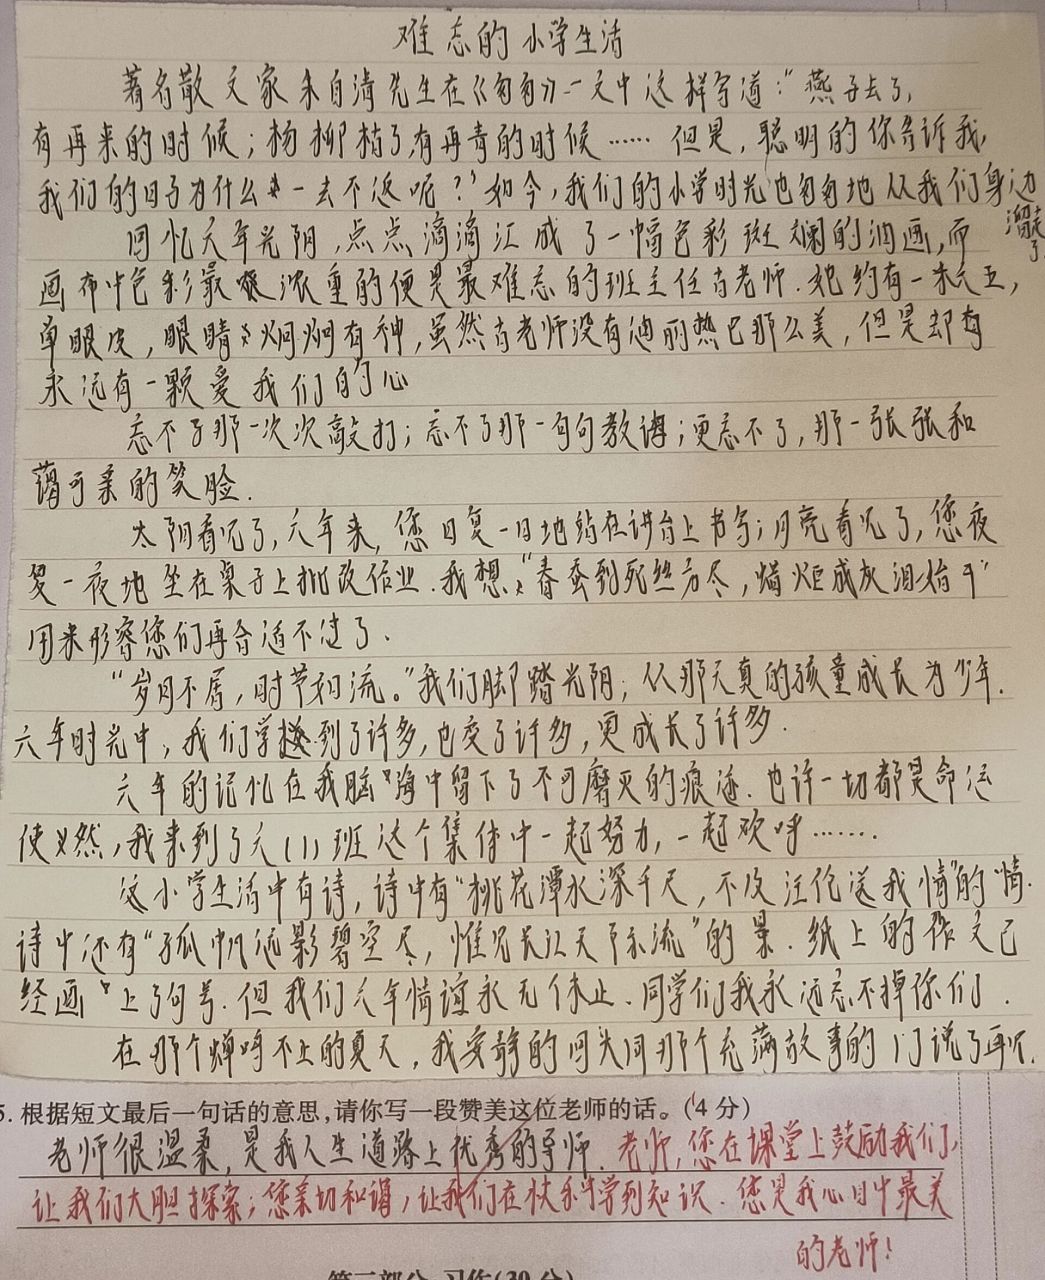 难忘的小学生活
著名散文家朱自清先生在《匆匆》一文中这样写道："燕子去了,
有再来的时候；杨柳枯了,有再青的时候……但是,聪明的你告诉我,
我们的日子为什么一去不返呢？"如今,我们的小学时光也匆匆地从我们身边
溜走了.
回忆六年光阴,点点滴滴汇成了一幅色彩斑斓的油画,而
画布中色彩最浓重的便是最难忘的班主任古老师.她约有一米六五,
单眼皮,眼睛炯炯有神,虽然古老师没有迪丽热巴那么美,但是却有
永远有一颗爱我们的心
忘不了那一次次敲打；忘不了那一句句教诲；更忘不了,那一张张和
蔼可亲的笑脸.
太阳看见了,六年来,您日复一日地站在讲台上书写；月亮看见了,您夜
复一夜地坐在桌子上批改作业.我想,"春蚕到死丝方尽,烛炬成灰泪始干"
用来形容您们再合适不过了.
"岁月不居,时节如流。"我们脚踏光阴,从那天真的孩童成长为少年.
六年时光中,我们学到了许多,也变了许多,更成长了许多.
六年的记忆在我脑海中留下了不可磨灭的痕迹.也许一切都是命运
使然,我来到了六(1)班这个集体中一起努力,一起欢呼…….
这小学生活中有诗,诗中有"桃花潭水深千尺,不及汪伦送我情"的情.
诗中还有"孤帆远影碧空尽,惟见长江天际流"的景.纸上的作文已
经画上了句号.但我们六年情谊永无休止.同学们我永远忘不掉你们.
在那个蝉鸣不止的夏天,我安静的回头同那个充满故事的门说了再见.
5. 根据短文最后一句话的意思,请你写一段赞美这位老师的话。(4 分)
老师很温柔,是我人生道路上优秀的导师.老师,您在课堂上鼓励我们,
让我们大胆探索；您亲切和谐,让我们在快乐中学到知识.您是我心目中最美
的老师!
第二部分 习作(30 分)